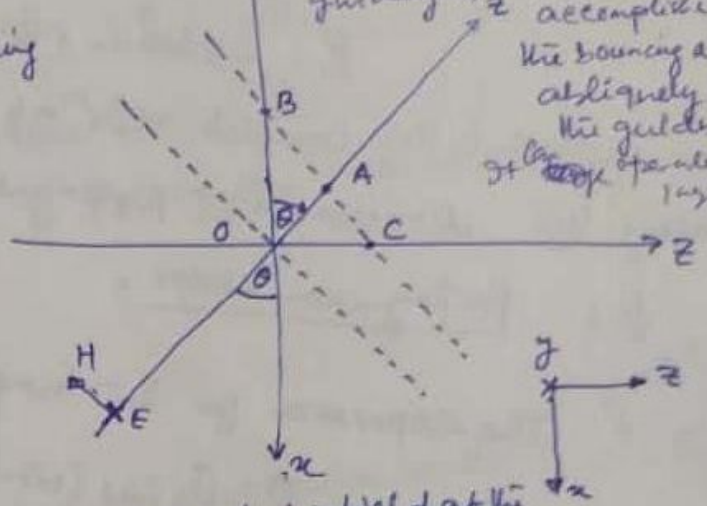 ing
z
accomplish
the bouncing a
obliquely
the guide
It can operate
B
θ
A
O
C
z
θ
H
E
x
y
z
x